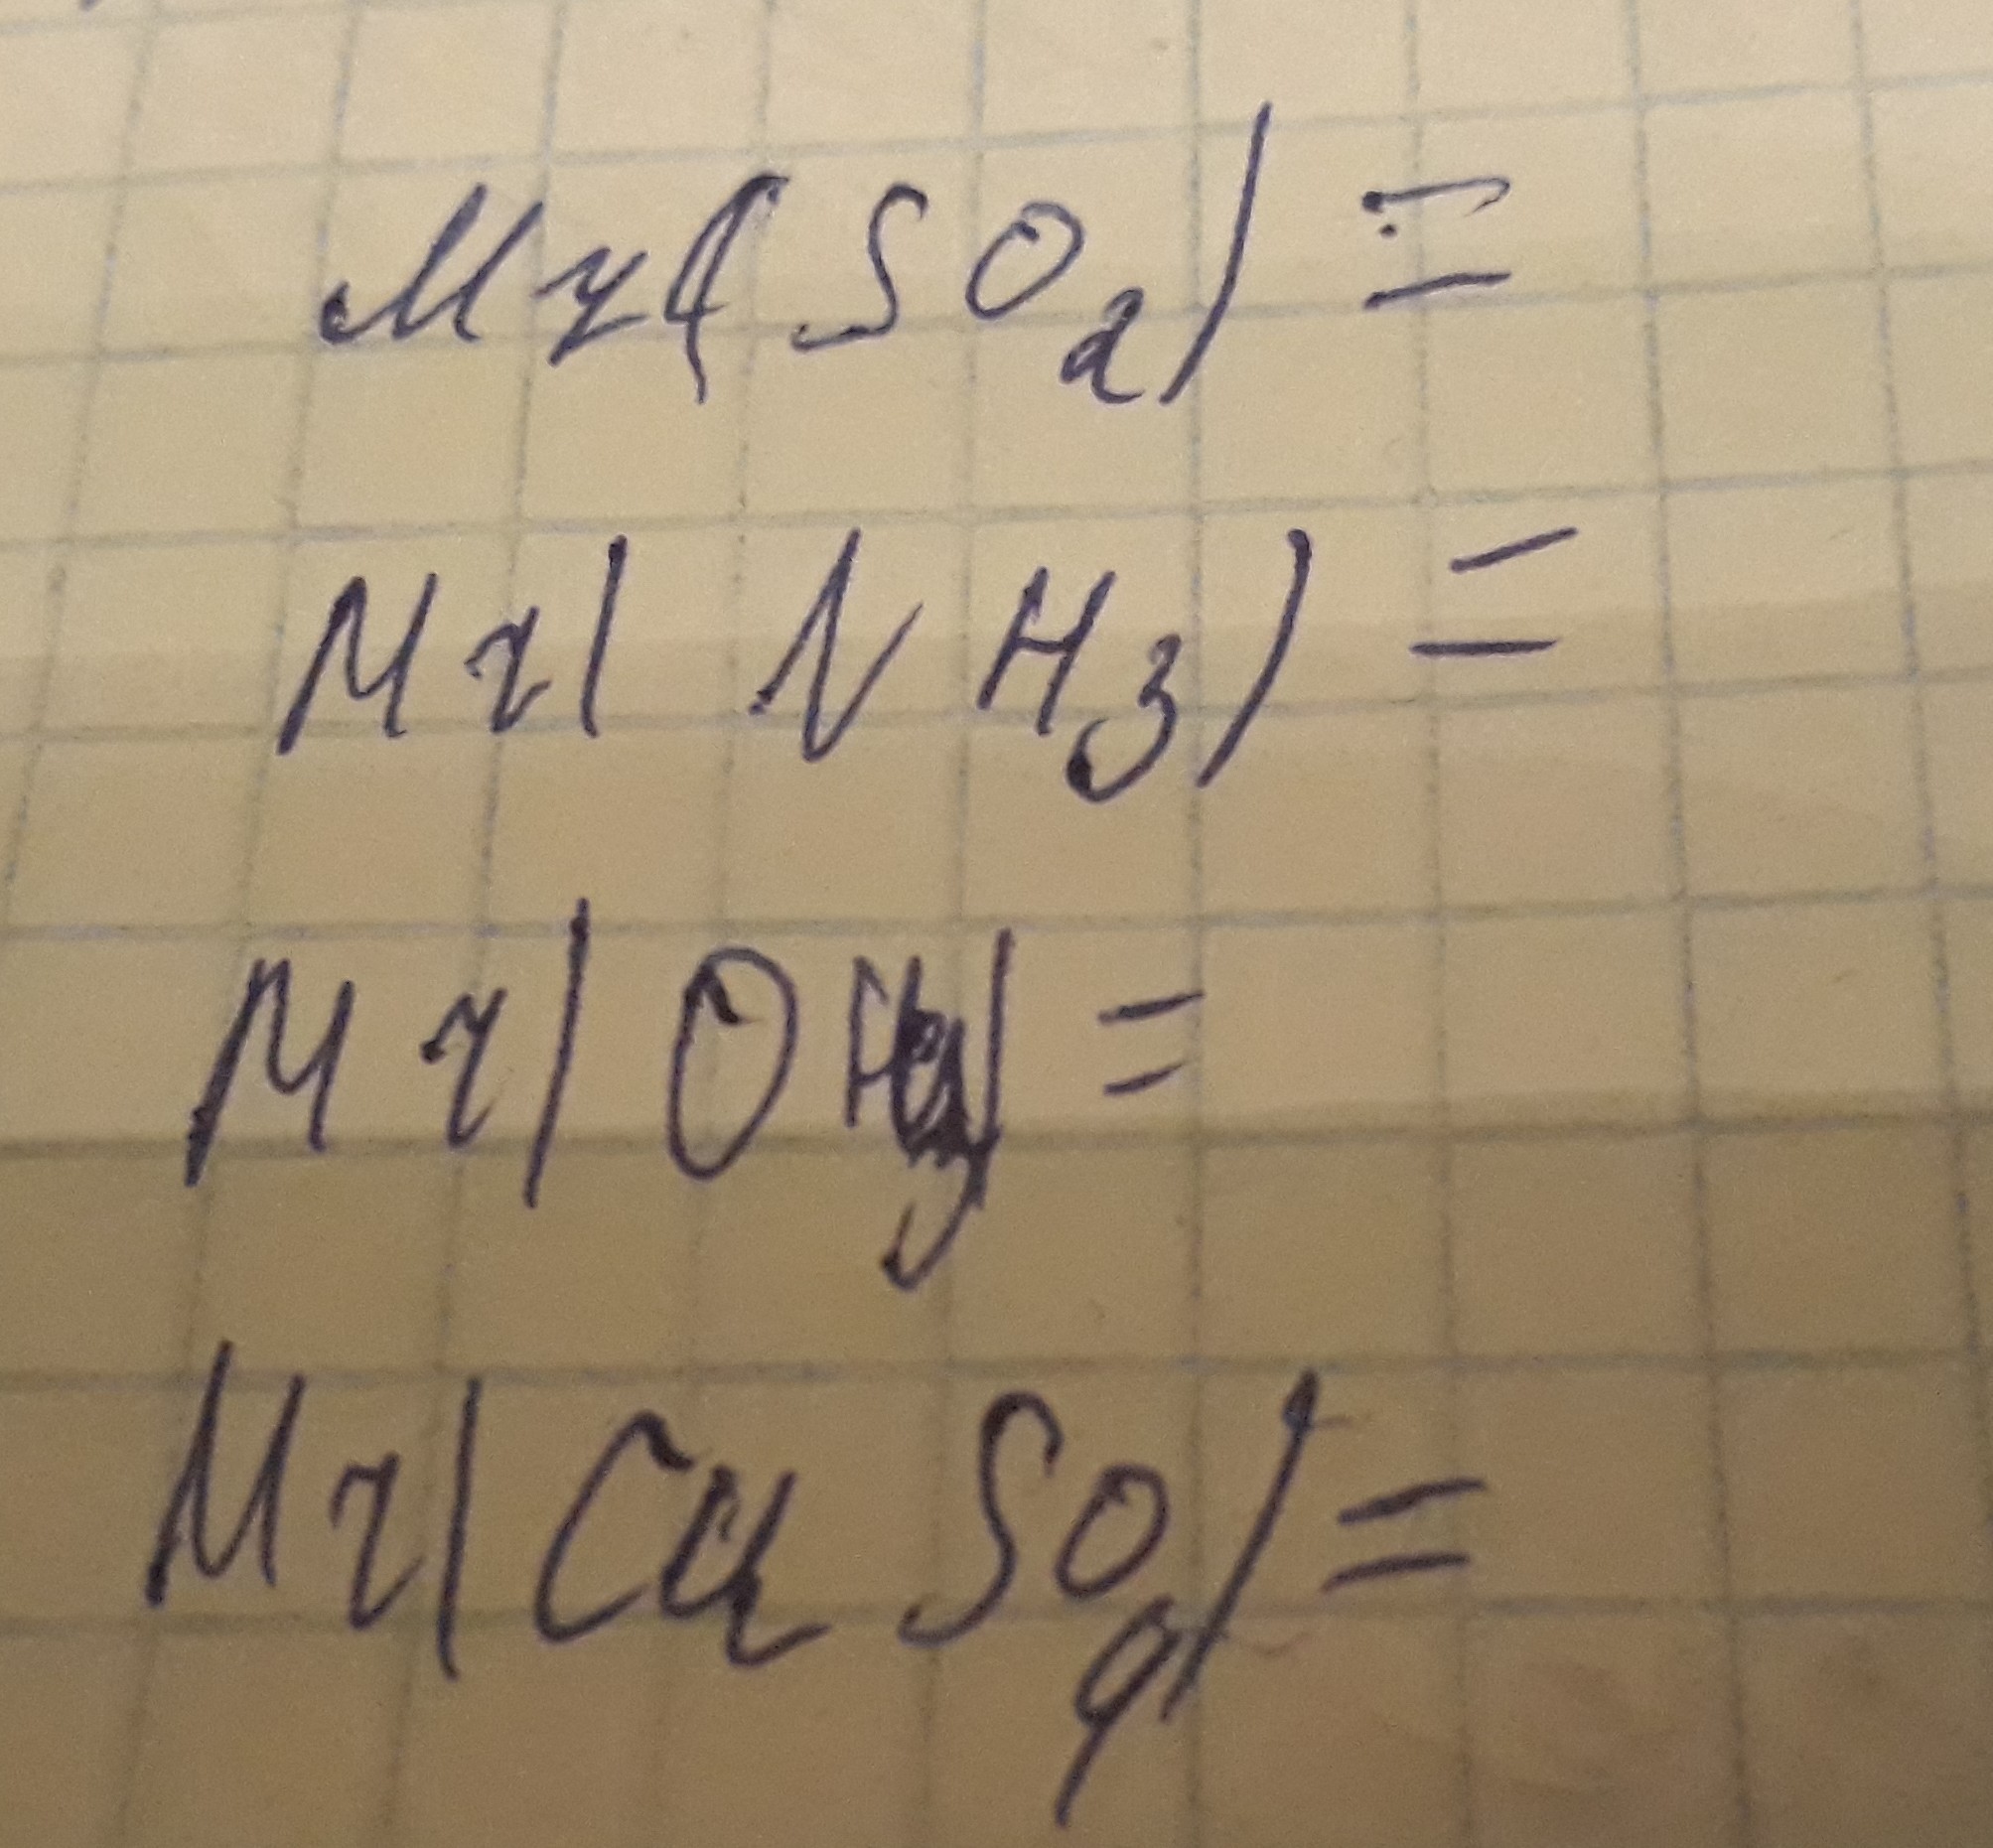 Mr(SO₂) =
Mr(NH₃) =
Mr(OH) =
Mr(CuSO₄) =